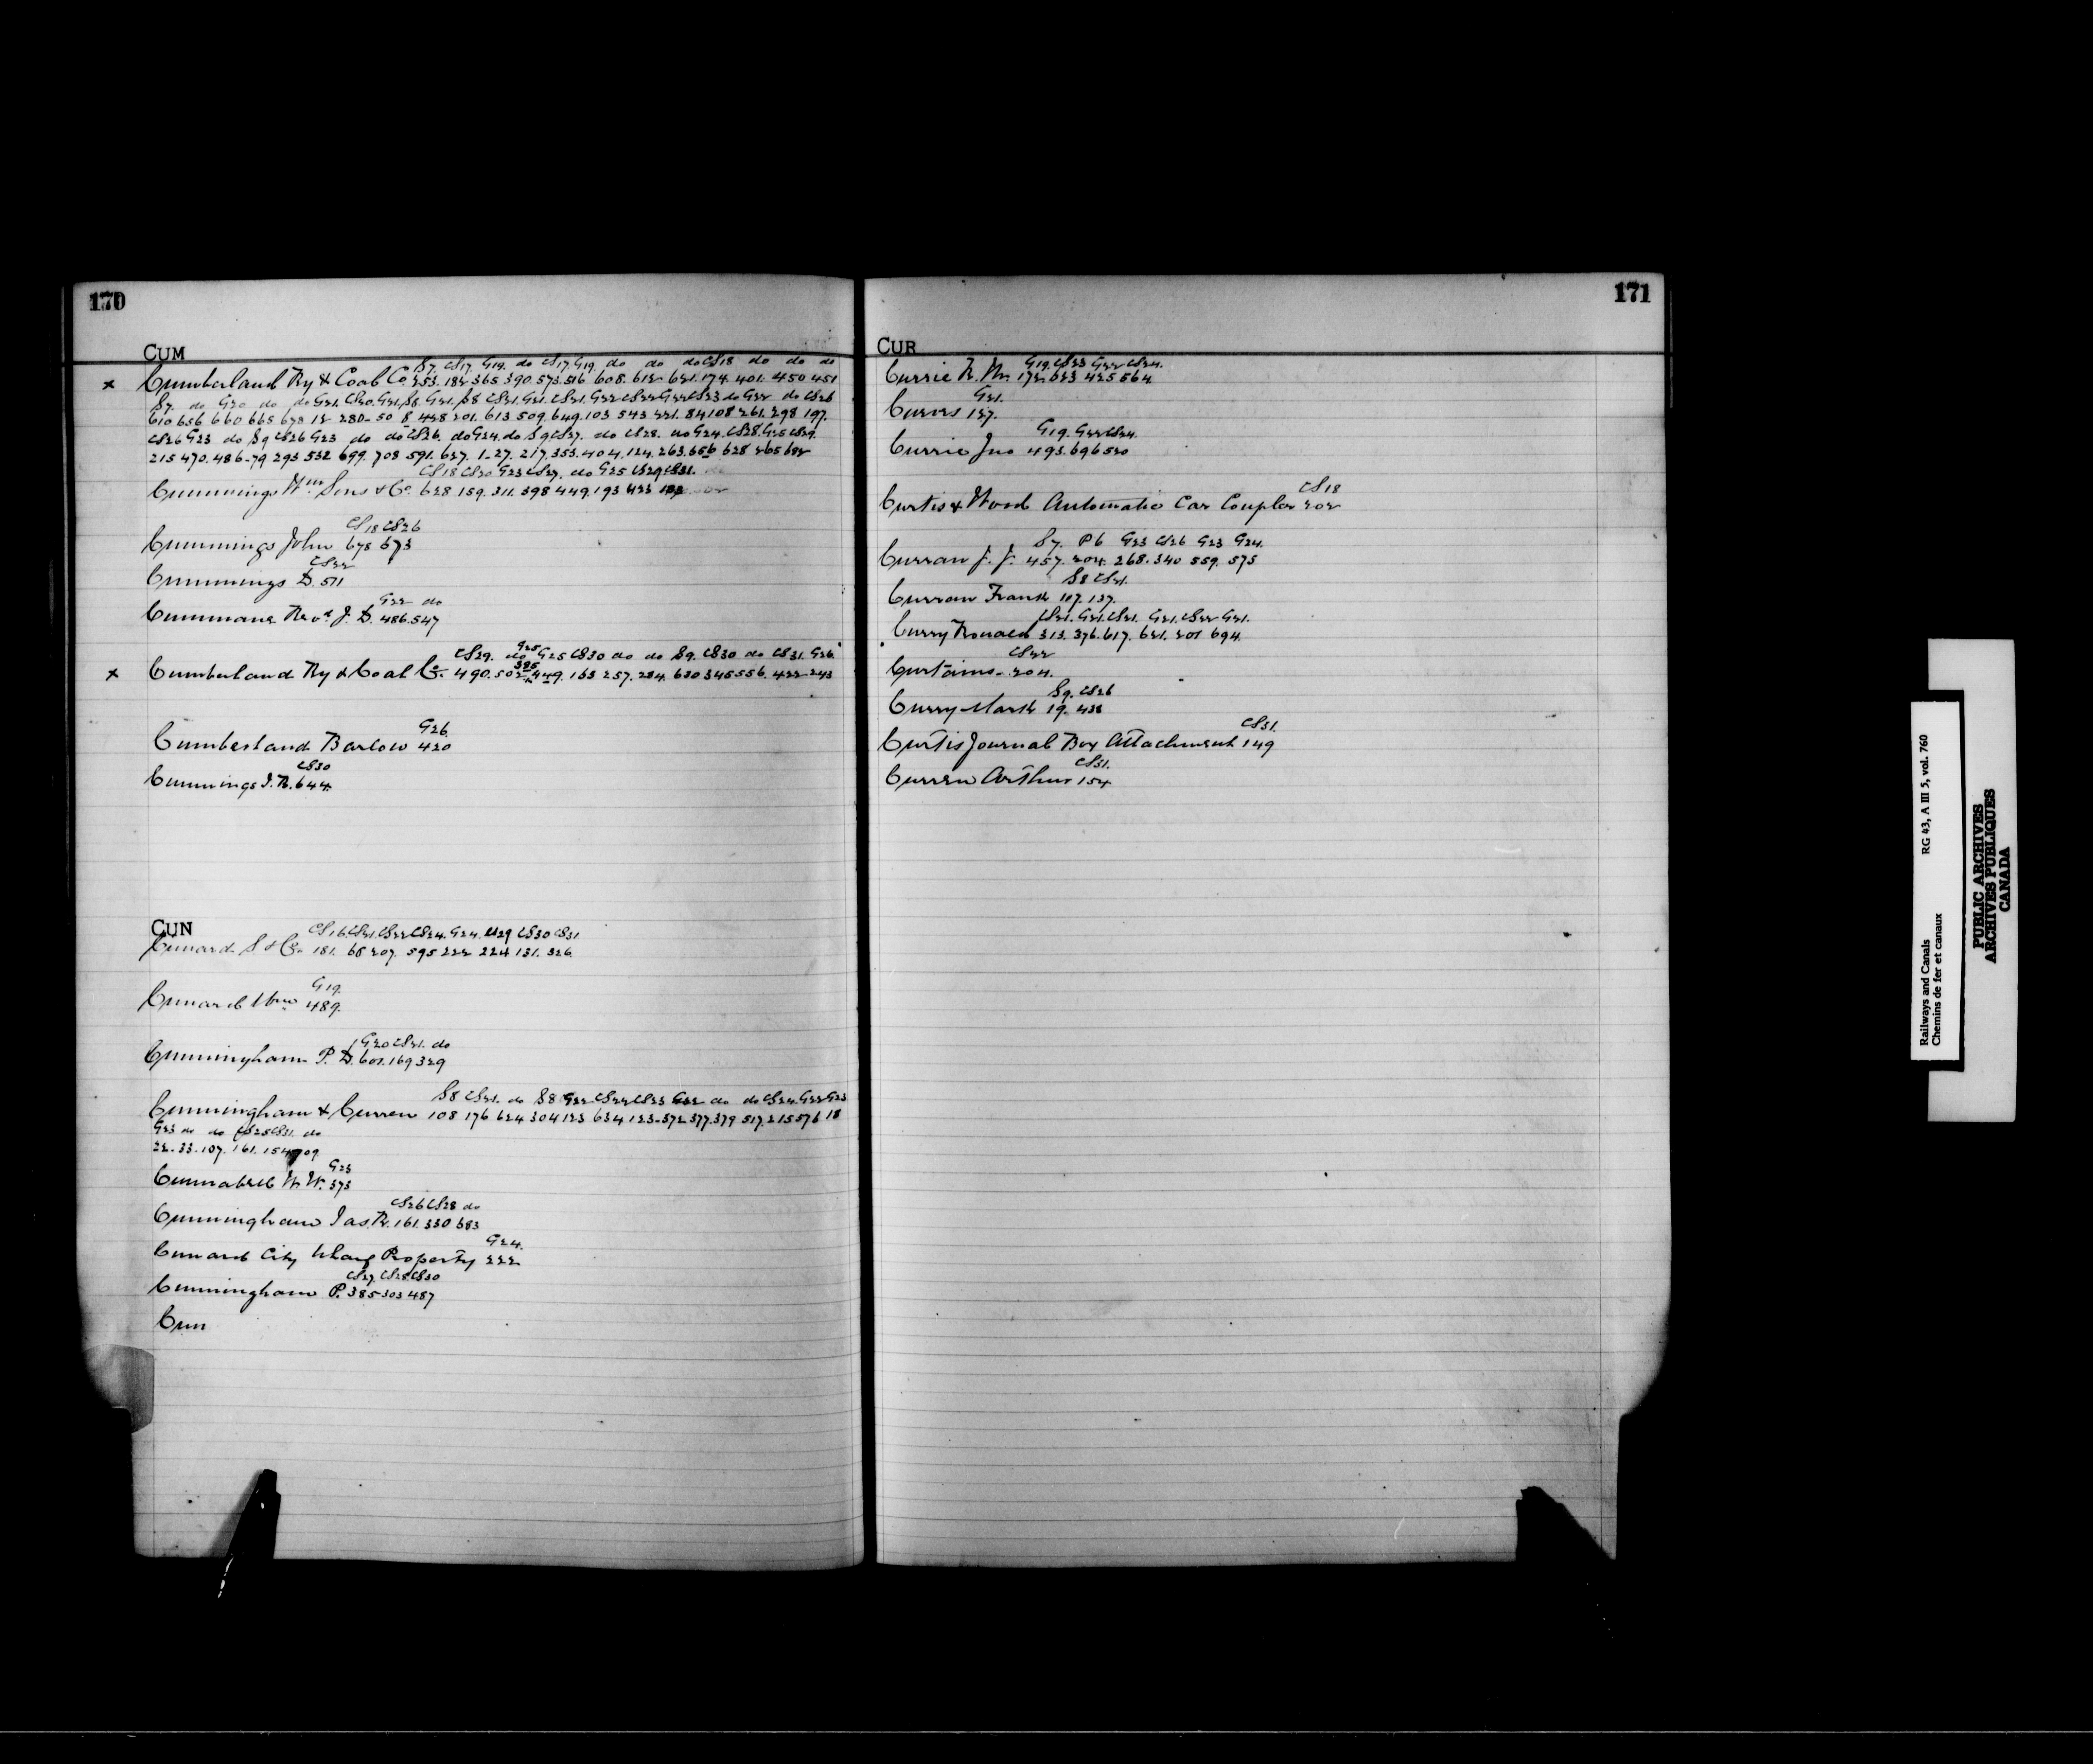 170
CUM
S7. CS17. G19. do CS17. G19. do do do CS18 do do do
x Cumberland Ry & Coal Co 253. 182 365 390. 573. 516 608. 612 621. 174. 401. 450 451
S7. do G20 do do G21. CS20. G21. S8 G21. S8 CS21. G21. CS21. G22 CS22 G22 CS23 do G22 do CS26
610 656 660 665 678 12 280-50 8 428 201. 613 509. 649. 103 543 221. 84 108 261. 298 197.
CS26 G23 do S9 CS26 G23 do do CS26. do G24. do S9 CS27. do CS28. do G24. CS28. G25 CS29.
215 470. 486-79 293 532 699. 708 591. 627. 1-27. 217. 353. 404. 124. 263. 656 628 265 682
CS18 CS20 G23 CS27. do G25 CS29 CS31.
Cummings Wm Sons & Co. 628 159. 311. 398 449. 193 423
CS18 CS26
Cummings John 678 673
CS22
Cummings D. 571
G22 do
Cummane Revd J. D. 486. 547
CS29. do G25 G25 CS30 do do S9. CS30 do CS31. G26.
x Cumberland Ry & Coal Co. 490. 502 385 449. 163 257. 284. 630 345 556. 422-243
G26.
Cumberland Barlow 420
CS30
Cummings J. R. 644.
CUN
CS16. CS21. CS22 CS24. G24. CS29 CS30 CS31
Cunard S & Co 181. 68 207. 595 222 224 131. 326.
G19.
Cunard Wm 489.
G20 CS21. do
Cunningham P. D. 601. 169 329
S8 CS21. do S8 G22 CS22 CS23 G22 do do CS24. G22 G23
Cunningham & Curren 108 176 624 304 123 634 123-372 377. 379 517. 215 576 18
G23 do do CS25 CS31. do
22-33-107. 161. 154 709
G23
Cunnabell W. W. 373
CS26 CS28 do
Cunningham Jas. R. 161. 330 683
G24.
Cunard City Wharf Property 222
CS27. CS28. CS30
Cunningham P. 385 303 487
Cun
171
CUR
G19. CS23 G22 CS24.
Currie R. Wm 172 623 425 564
G21.
Curvs 137.
G19. G22 CS24.
Currie Jno 493. 696 520
CS18
Curtis & Wood Automatic Car Coupler 202
S7. P6 G23 CS26 G23 G24.
Curran J. J. 457. 204. 268. 340 559. 575
S8 CS21.
Curran Frank 107. 137.
CS21. G21. CS21. G21. CS22 G21.
Curry Ronald 313. 376. 617. 621. 201 694.
CS22
Curtains - 204.
S9. CS26
Curry Mark 19. 438
CS31.
Curtis Journal Box Attachment 149
CS31.
Curren Arthur 154
Railways and Canals RG 43, A III 5, vol. 760
Chemins de fer et canaux
PUBLIC ARCHIVES
ARCHIVES PUBLIQUES
CANADA